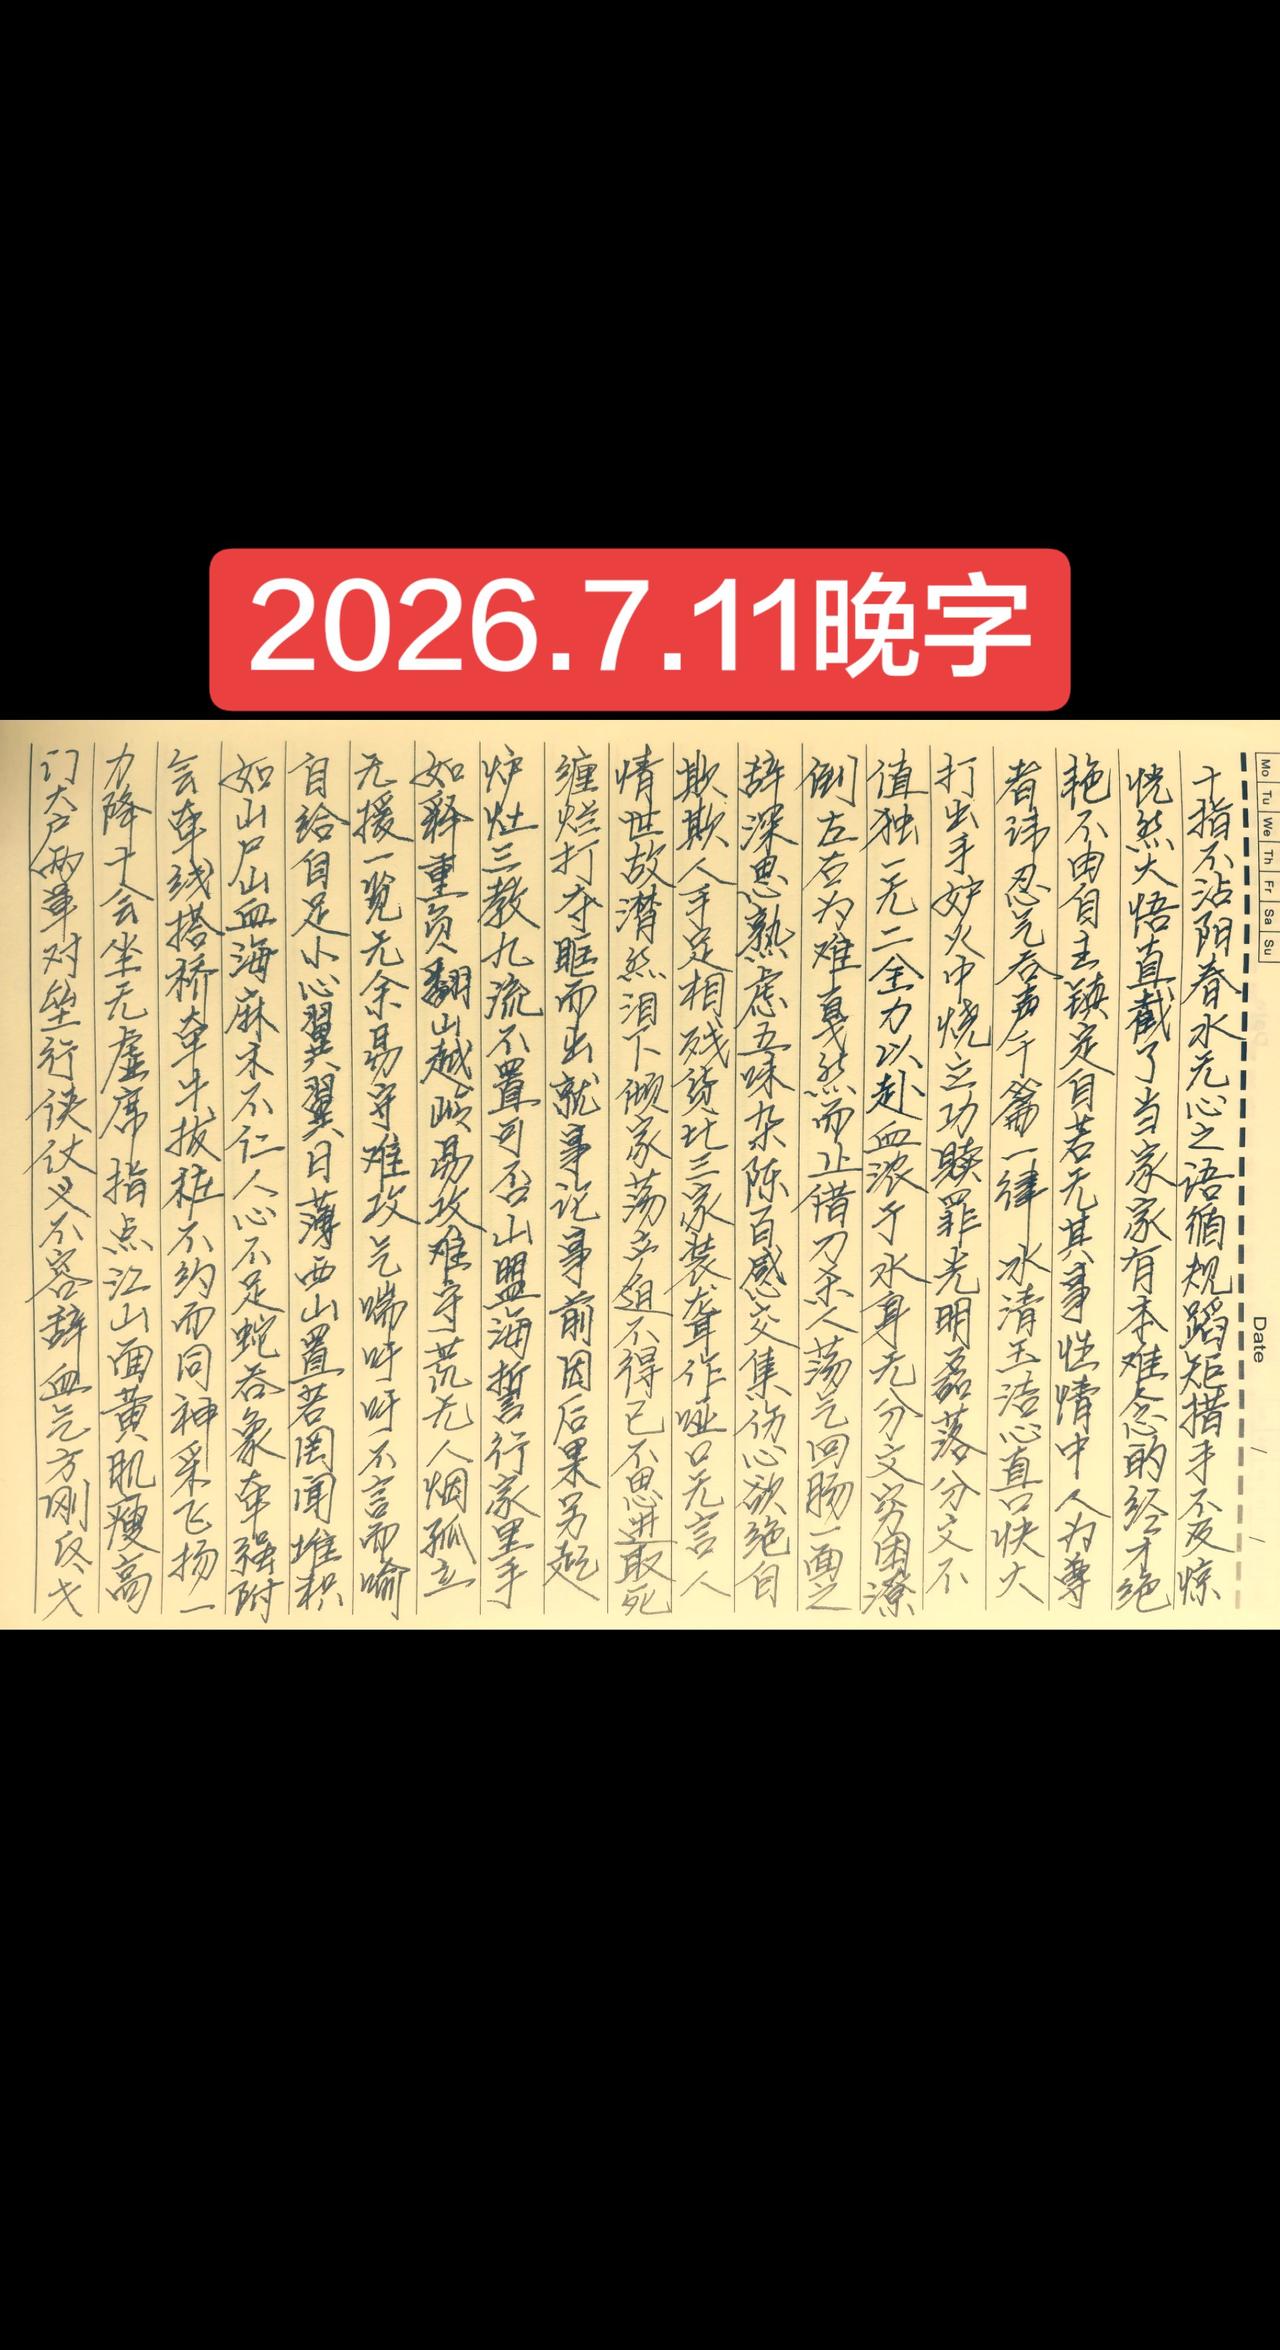 2026.7.11晚字
Mo Tu We Th Fr Sa Su
Date
十指不沾阳春水无心之语循规蹈矩措手不及惊
恍然大悟直截了当家家有本难念的经才绝
艳不由自主镇定自若无其事性情中人为尊
者讳忍气吞声千篇一律冰清玉洁心直口快大
打出手妒火中烧立功赎罪光明磊落分文不
值独一无二全力以赴血浓于水身无分文穷困潦
倒左右为难戛然而止借刀杀人荡气回肠一面之
辞深思熟虑五味杂陈百感交集伤心欲绝自
欺欺人手足相残货比三家装聋作哑口无言人
情世故潸然泪下倾家荡产迫不得已不思进取死
缠烂打夺眶而出就事论事前因后果另起
炉灶三教九流不置可否山盟海誓行家里手
如释重负翻山越岭易攻难守荒无人烟孤立
无援一览无余易守难攻气喘吁吁不言而喻
自给自足小心翼翼日薄西山置若罔闻堆积
如山尸山血海麻木不仁人心不足蛇吞象牵强附
会牵线搭桥牵牛拔桩不约而同神采飞扬一
力降十会坐无虚席指点江山面黄肌瘦高
门大户两军对垒行侠仗义不容辞血气方刚反戈